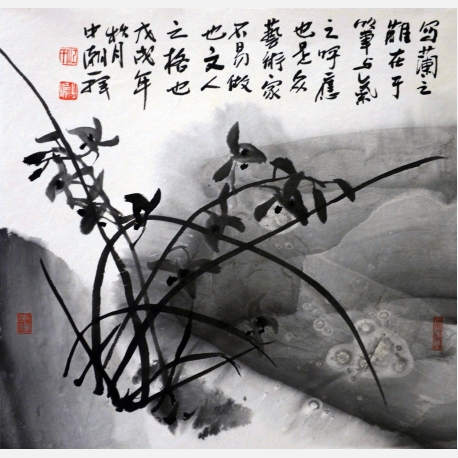 写蘭之
難在于
筆与氣
之呼應
也是众
藝術家
不易做
也文人
之格也
戊戌年
中湖一禅